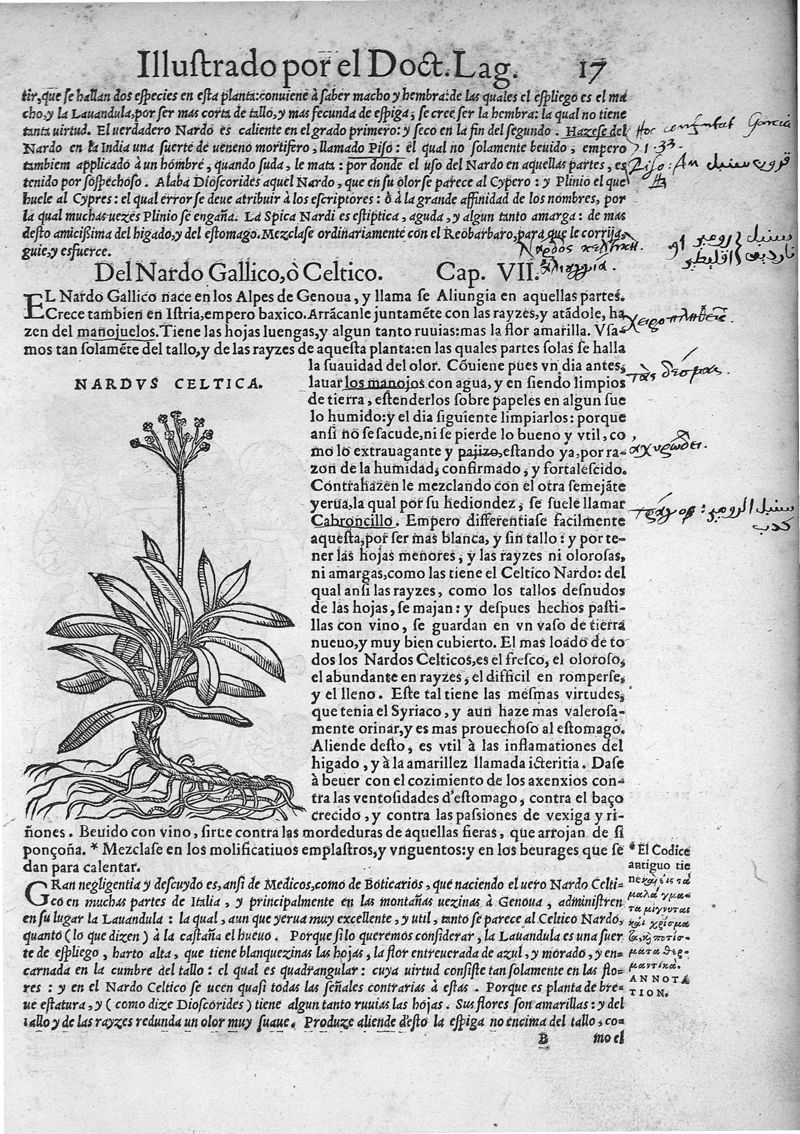 Illustrado por el Doct. Lag. 17
tir, que se hallan dos especies en esta planta: conuiene à saber macho y hembra: de las quales el espliego es el ma
cho, y la Lauandula, por ser mas corta de tallo, y mas fecunda de espiga, se cree ser la hembra: la qual no tiene
tanta virtud. El uerdadero Nardo es caliente en el grado primero: y seco en la fin del segundo. Hazese del
Nardo en la India una suerte de ueneno mortifero, llamado Piso: el qual no solamente beuido, empero
tambiem applicado à un hombre, quando suda, le mata: por donde el uso del Nardo en aquellas partes, es
tenido por sospechoso. Alaba Dioscorides aquel Nardo, que en su olor se parece al Cypero: y Plinio el que
huele al Cypres: el qual error se deue atribuir à los escriptores: ò à la grande affinidad de los nombres, por
la qual muchas uezes Plinio se engaña. La Spica Nardi es estiptica, aguda, y algun tanto amarga: de mas
desto amicissima del higado, y del estomago. Mezclase ordinariamente con el Reobarbaro, para que le corrija,
guie, y esfuerce.
Del Nardo Gallico, ò Celtico. Cap. VII.
EL Nardo Gallico nace en los Alpes de Genoua, y llama se Aliungia en aquellas partes.
Crece tambien en Istria, empero baxico. Arrácanle juntaméte con las rayzes, y atádole, ha
zen del manojuelos. Tiene las hojas luengas, y algun tanto ruuias: mas la flor amarilla. Vsa
mos tan solaméte del tallo, y de las rayzes de aquesta planta: en las quales partes solas se halla
la suauidad del olor. Cóuiene pues vn dia antes,
NARDVS CELTICA.
lauar los manojos con agua, y en siendo limpios
de tierra, estenderlos sobre papeles en algun sue
lo humido: y el dia siguiente limpiarlos: porque
ansi nò se sacude, ni se pierde lo bueno y vtil, co
mo lo extrauagante y pajizo, estando ya, por ra-
zon de la humidad, confirmado, y fortalescido.
Contrahazen le mezclando con el otra semejáte
yerua, la qual por su hediondez, se suele llamar
Cabroncillo. Empero differentiase facilmente
aquesta, por ser mas blanca, y sin tallo: y por te-
ner las hojas menores, y las rayzes ni olorosas,
ni amargas, como las tiene el Celtico Nardo: del
qual ansi las rayzes, como los tallos desnudos
de las hojas, se majan: y despues hechos pasti-
llas con vino, se guardan en vn vaso de tierra
nueuo, y muy bien cubierto. El mas loado de to
dos los Nardos Celticos, es el fresco, el oloroso,
el abundante en rayzes, el difficil en romperse,
y el lleno. Este tal tiene las mesmas virtudes,
que tenia el Syriaco, y aun haze mas valerosa-
mente orinar, y es mas prouechoso al estomago.
Aliende desto, es vtil à las inflamationes del
higado, y à la amarillez llamada icteritia. Dase
à beuer con el cozimiento de los axenxios con-
tra las ventosidades d'estomago, contra el baço
crecido, y contra las passiones de vexiga y ri-
ñones. Beuido con vino, sirue contra las mordeduras de aquellas fieras, que arrojan de si
ponçoña. * Mezclase en los molificatiuos emplastros, y vnguentos: y en los beurages que se
dan para calentar.
* El Codice
antiguo tie
GRan negligentia y descuydo es, ansi de Medicos, como de Boticarios, que naciendo el uero Nardo Celti-
co en muchas partes de Italia, y principalmente en las montañas uezinas à Genoua, administren
en su lugar la Lauandula: la qual, aun que yerua muy excellente, y util, tanto se parece al Celtico Nardo,
quanto (lo que dizen) à la castaña el hueuo. Porque si lo queremos considerar, la Lauandula es una suer
te de espliego, harto alta, que tiene blanquezinas las hojas, la flor entreuerada de azul, y morado, y en-
carnada en la cumbre del tallo: el qual es quadrangular: cuya virtud consiste tan solamente en las flo-
res: y en el Nardo Celtico se ueen quasi todas las señales contrarias à estas. Porque es planta de bre-
ue estatura, y (como dize Dioscorides) tiene algun tanto ruuias las hojas. Sus flores son amarillas: y del
tallo y de las rayzes redunda un olor muy suaue. Produze aliende d'esto la espiga no encima del tallo, co-
ANNOTA
TION.
B mo el